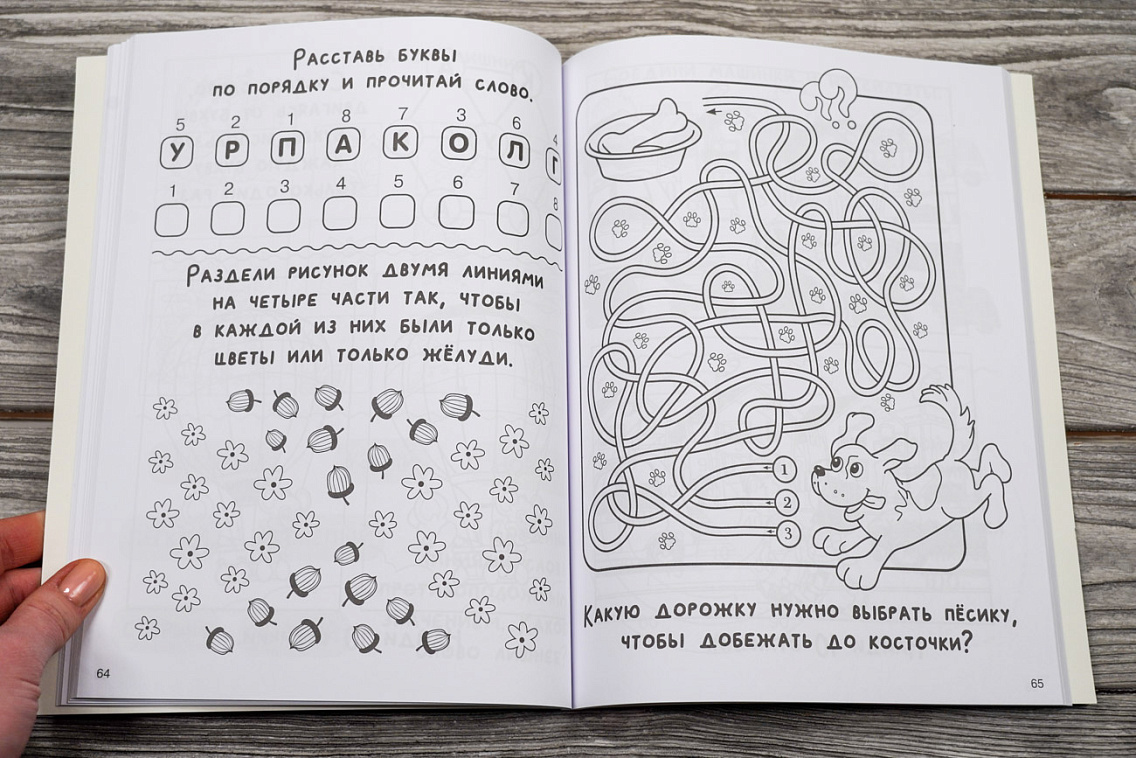 Расставь буквы
по порядку и прочитай слово.
5 2 1 8 7 3 6 4
У Р П А К О Л Г
1 2 3 4 5 6 7 8
Раздели рисунок двумя линиями
на четыре части так, чтобы
в каждой из них были только
цветы или только жёлуди.
64
???
1
2
3
Какую дорожку нужно выбрать пёсику,
чтобы добежать до косточки?
65